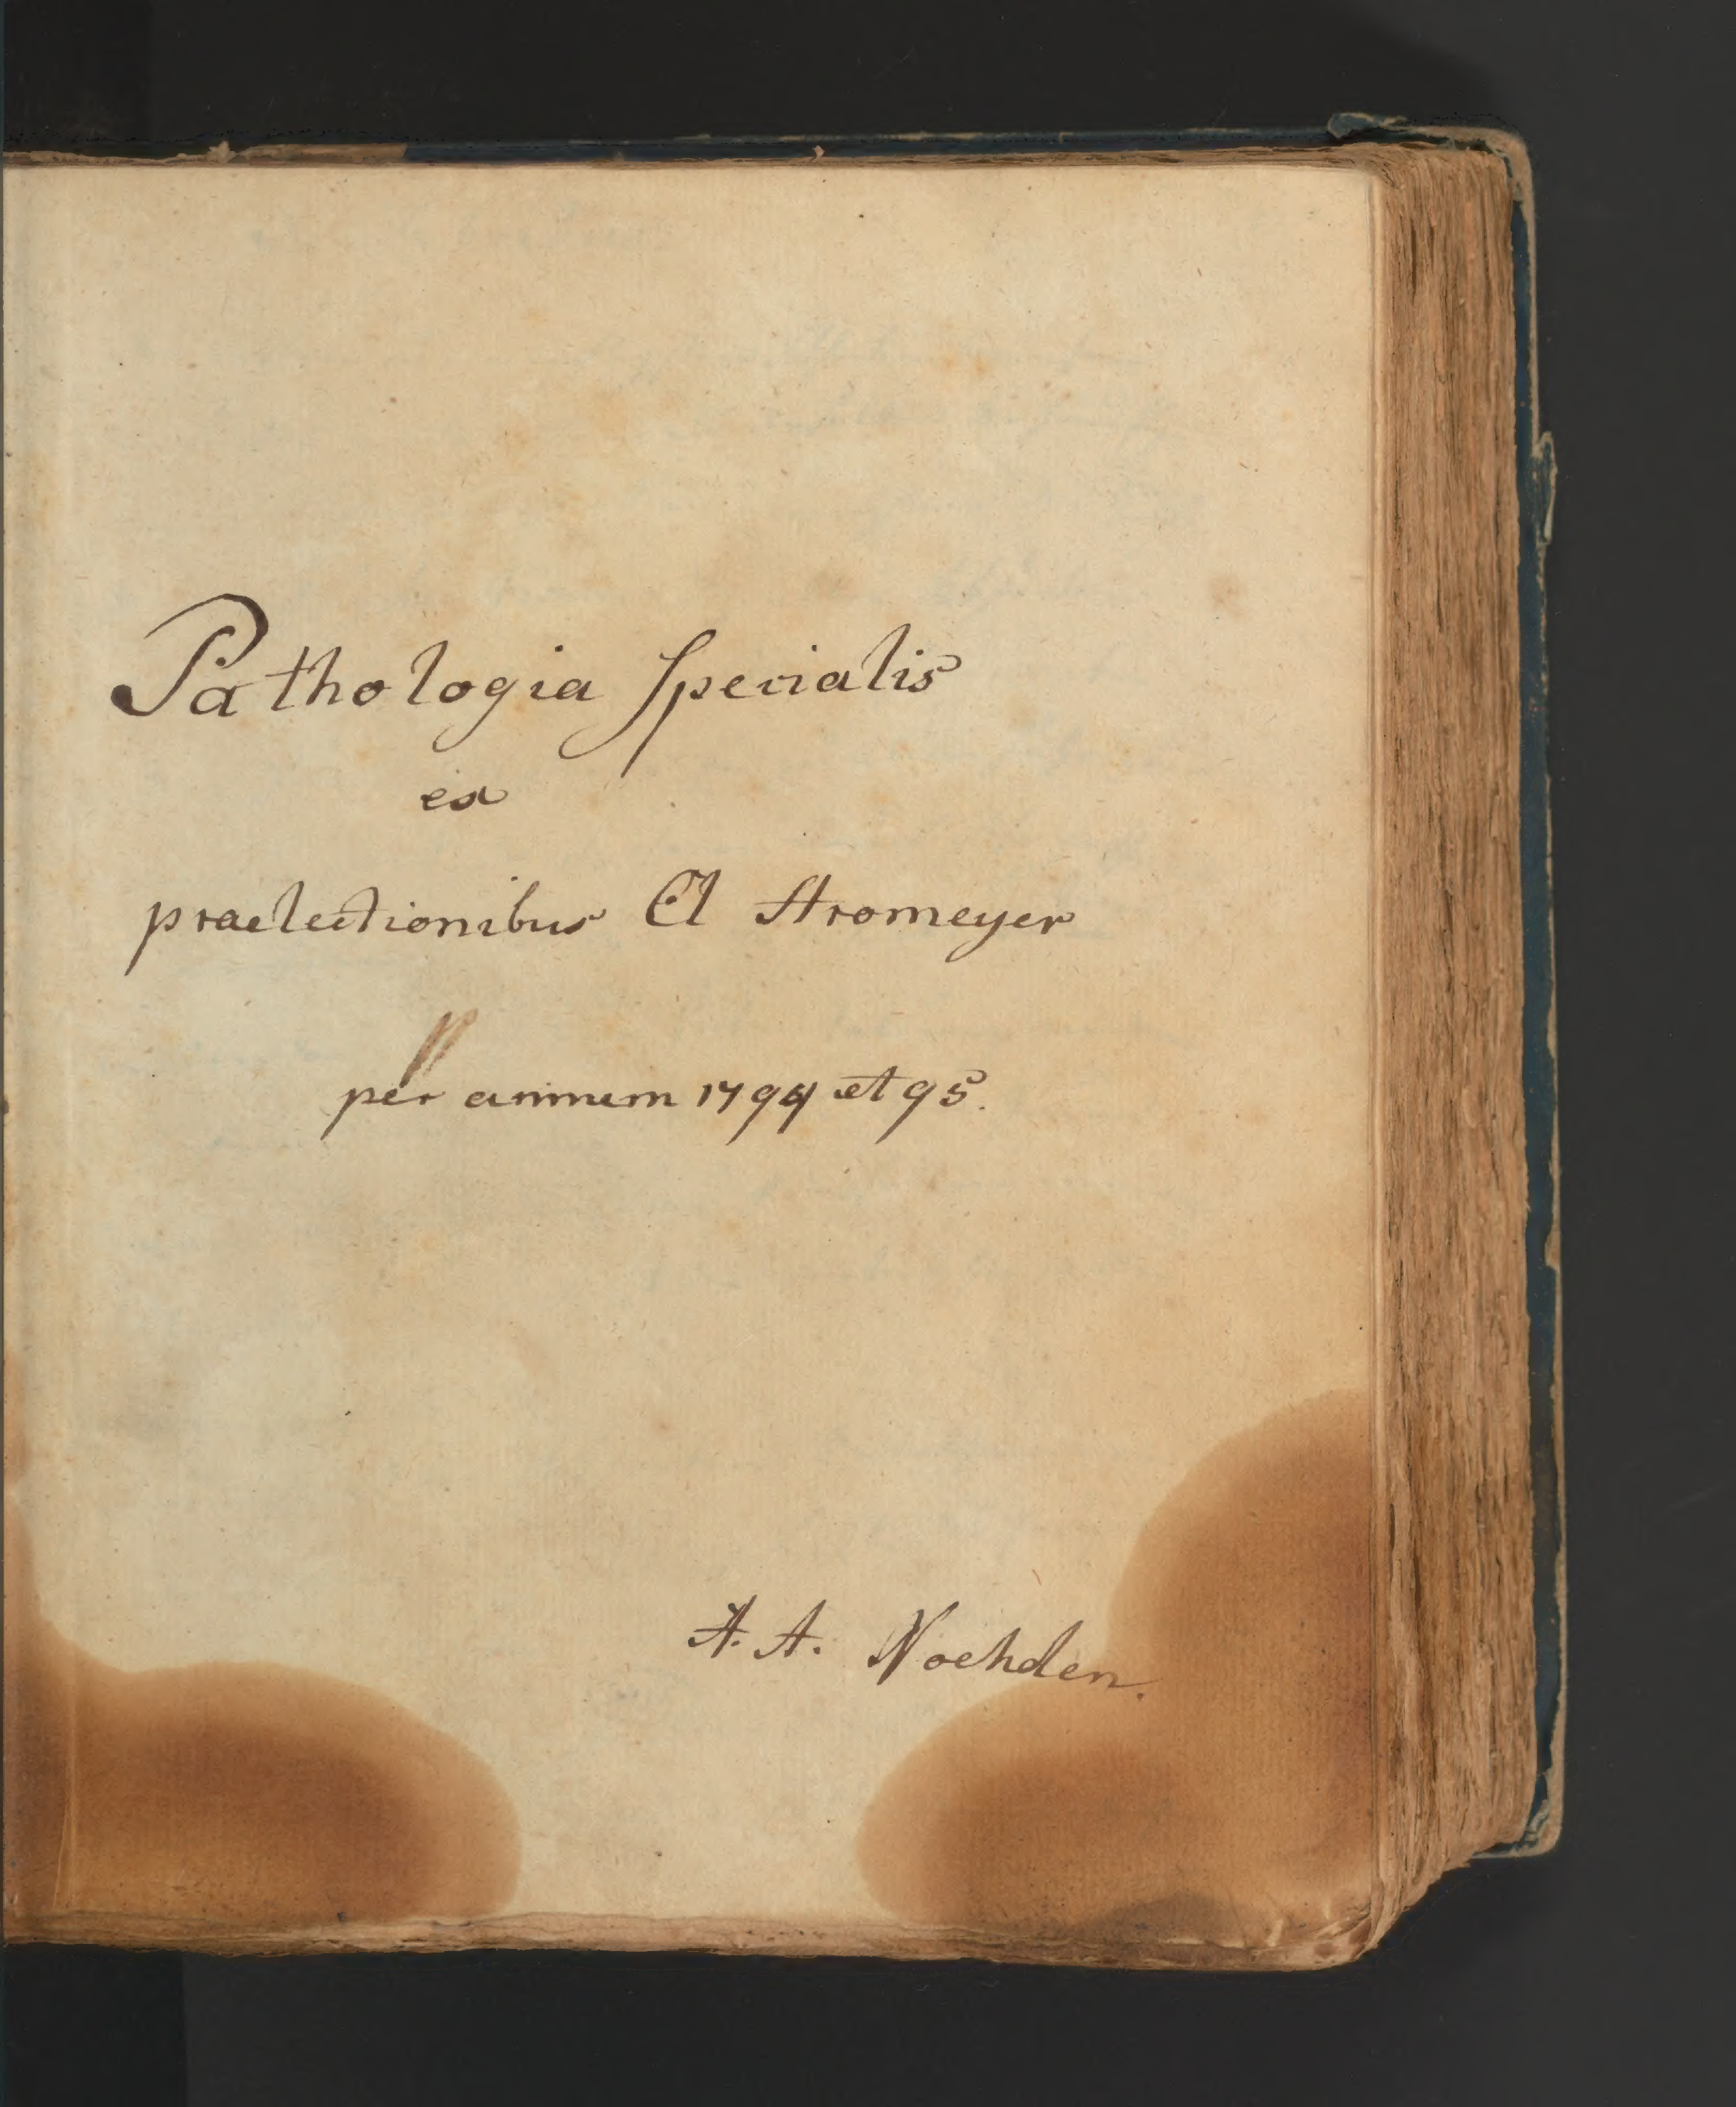 Pathologia specialis
ex
praelectionibus Cl Stromeyer
per annum 1794 et 95.
A. A. Noehden.